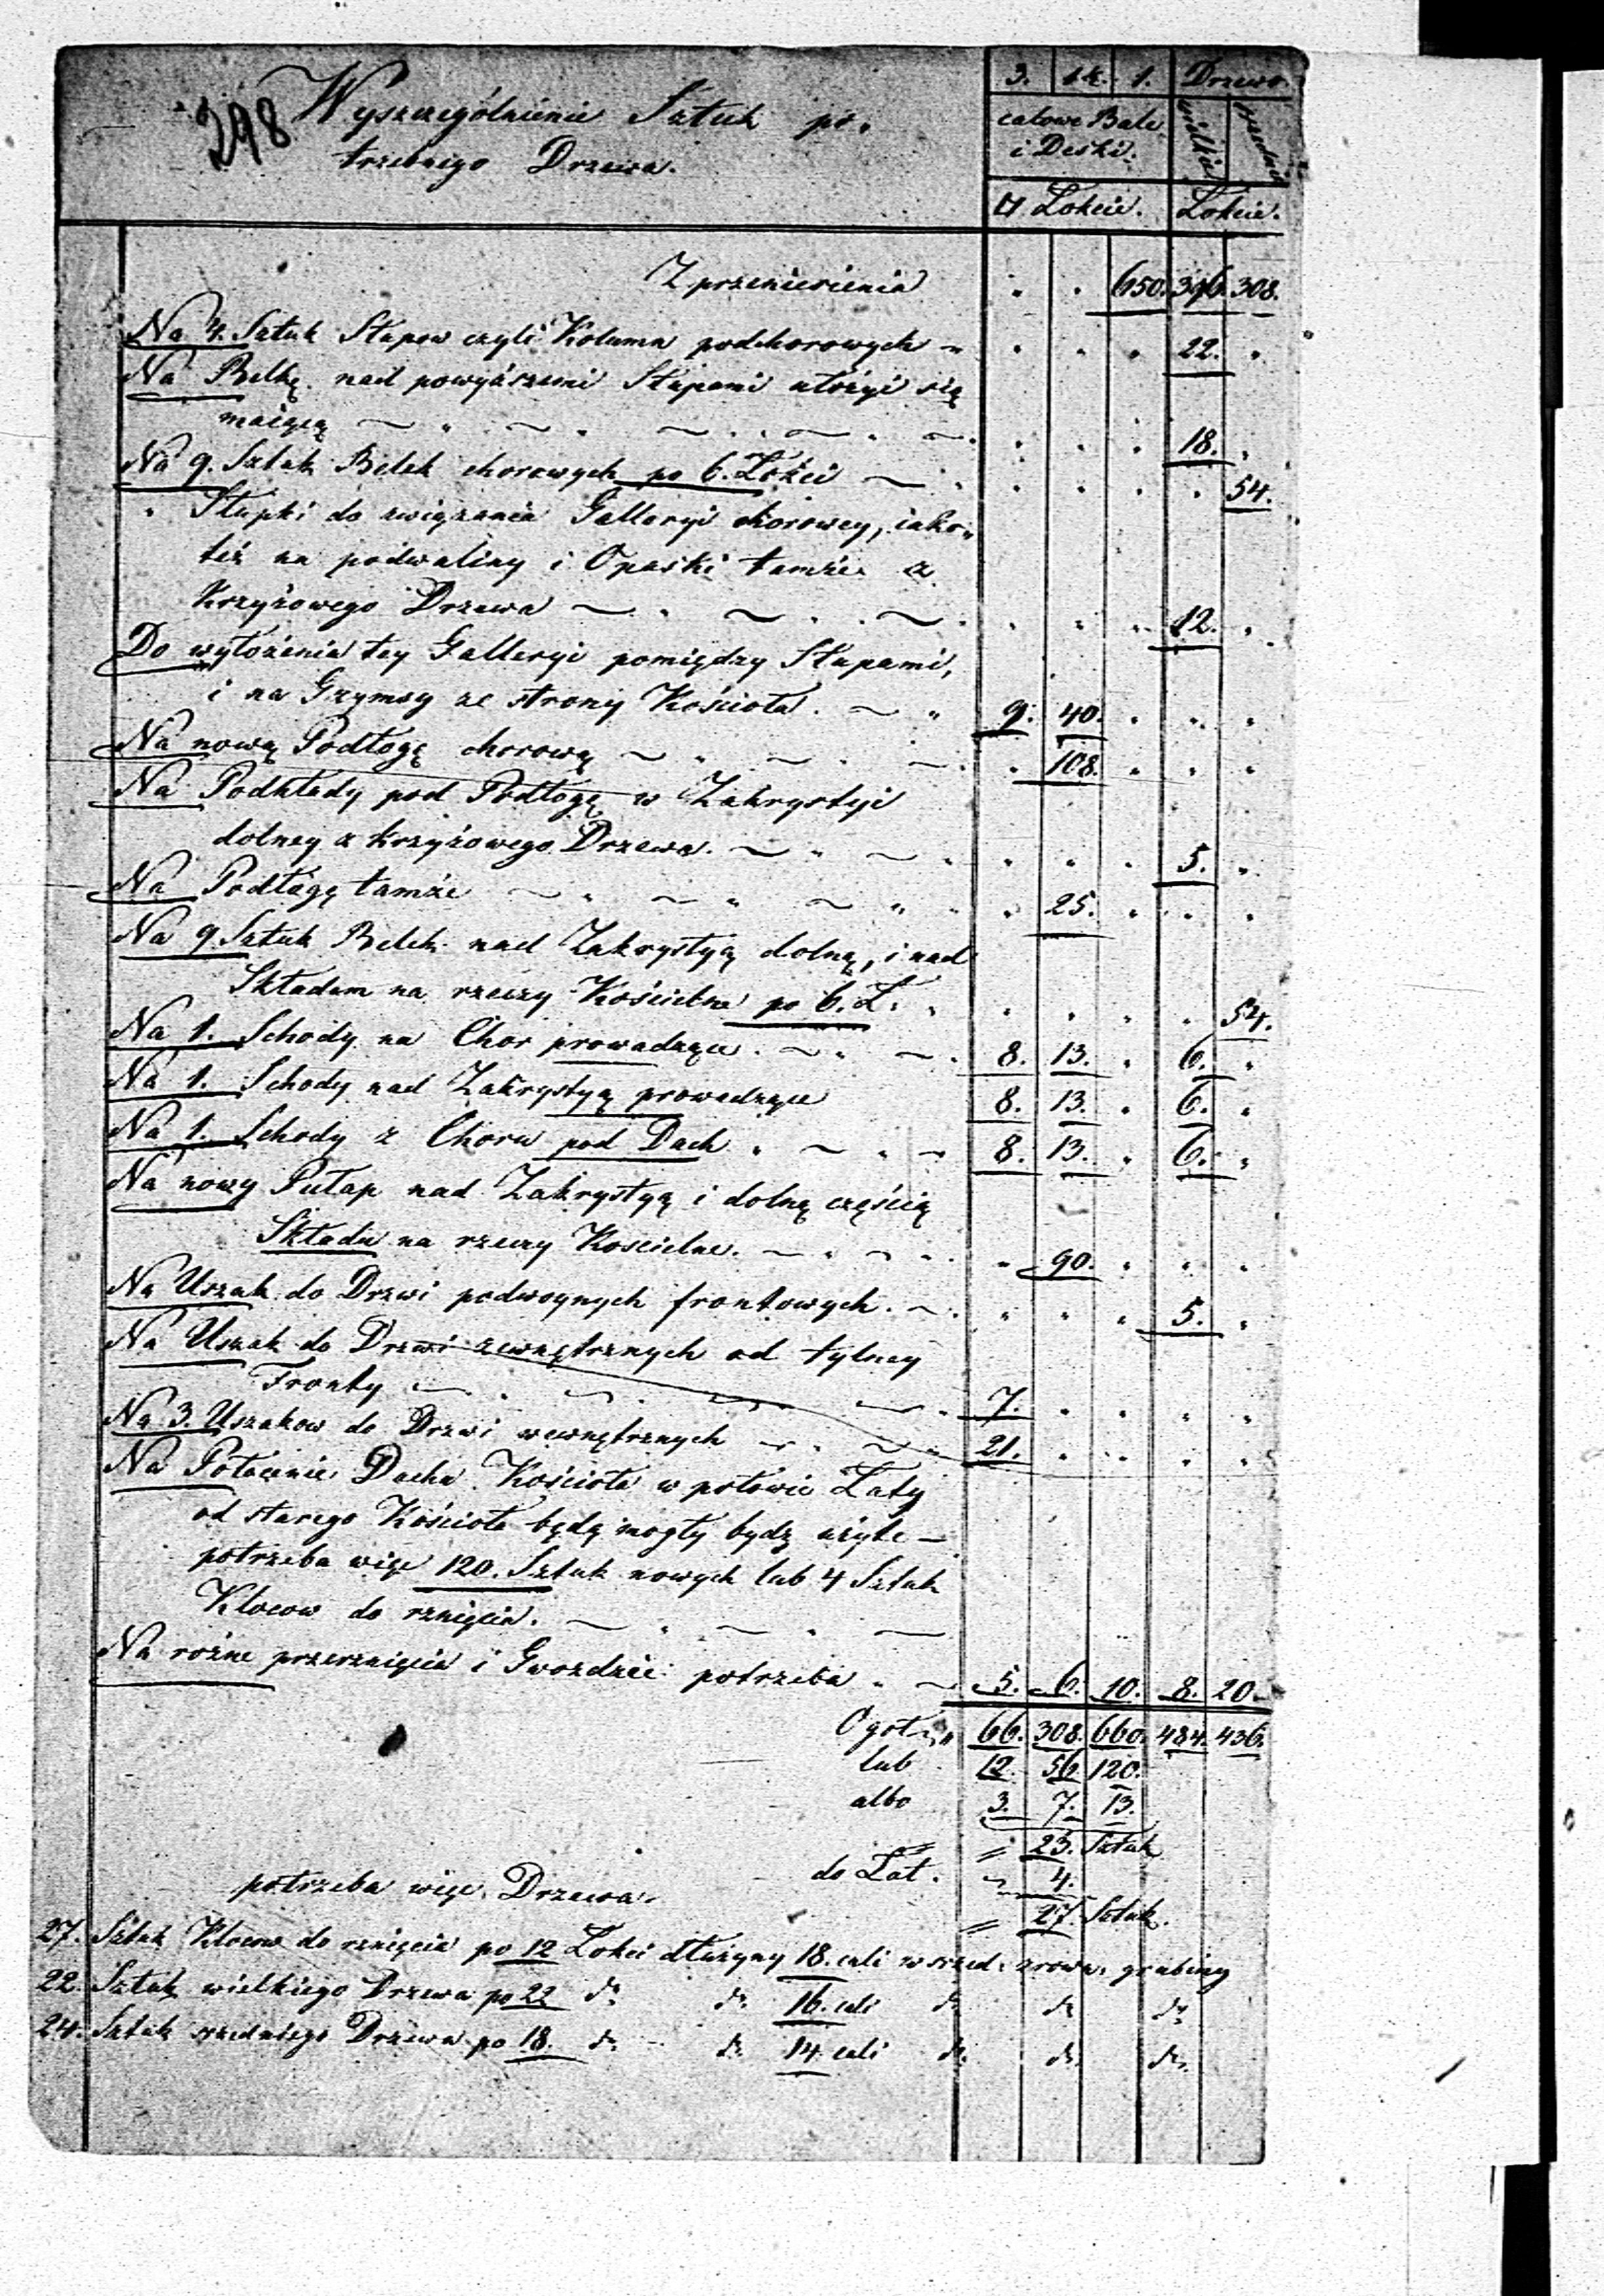 298
Wyszczególnienie Sztuk po-
trzebnego Drzewa.
3. 1½. 1. Drzewo.
calowe Bale
i Deski.
wielkie średnie
□ Łokcie. Łokcie.
Z przeniesienia " " 650. 396. 308.
Na 4. Sztuk Słupow czyli Kolumn podchorowych " " " " 22. "
Na Belkę nad powyższemi Słupami ułożyć się
maiącą " " " 18. "
Na 9. Sztuk Belek chorowych po 6. Łokci " " " " 54.
" Słupki do związania Galleryi chorowey, iako-
też na podwaliny i Opaski tamże z
Krzyżowego Drzewa " " " 12. "
Do wyłożenia tey Galleryi pomiędzy Słupami,
i na Gzymsy ze strony Kościoła. 9. 40. " " "
Na nową Podłogę chorową " 108. " " "
Na Podkłady pod Podłogę w Zakrystyi
dolney z krzyżowego Drzewa. " " " 5. "
Na Podłogę tamże " 25. " " "
Na 9 Sztuk Belek nad Zakrystyą dolną, i nad
Składem na rzeczy Kościelne po 6. Ł. " " " " 54.
Na 1. Schody na Chor prowadzące. 8. 13. " 6. "
Na 1. Schody nad Zakrystyą prowadzące 8. 13. " 6. "
Na 1. Schody z Choru pod Dach 8. 13. " 6. "
Na nowy Pułap nad Zakrystyą i dolną częścią
Składu na rzeczy Koscielne. " 90. " " "
Na Uszak do Drzwi podwoynych frontowych. " " " 5. "
Na Uszak do Drzwi zewnętrznych od tylney
Fronty 7. " " " "
Na 3. Uszakow do Drzwi wewnętrznych 21. " " " "
Na Połacenie Dachu Kościoła w połowie Łaty
od starego Kościoła będą mogły bydz użyte –
potrzeba więc 120. Sztuk nowych lub 4 Sztuk
Klocow do rznięcia.
Na rożne przerznięcia i Gwozdzie potrzeba 5. 6. 10. 8. 20
Ogoł. 66. 308. 660. 484. 436.
lub 12. 56 120.
albo 3. 7. 13.
= 23. Sztuk
do Łat. 4.
potrzeba więc Drzewa. = 27. Sztuk.
27. Sztuk Klocow do rznięcia po 12 Łokci dłużyny 18. cali w srzed: zrown: grubiny
22. Sztuk wielkiego Drzewa po 22 do do 16. cali do do do
24. Sztuk srzedniego Drzewa po 18. do do 14 cali do do do